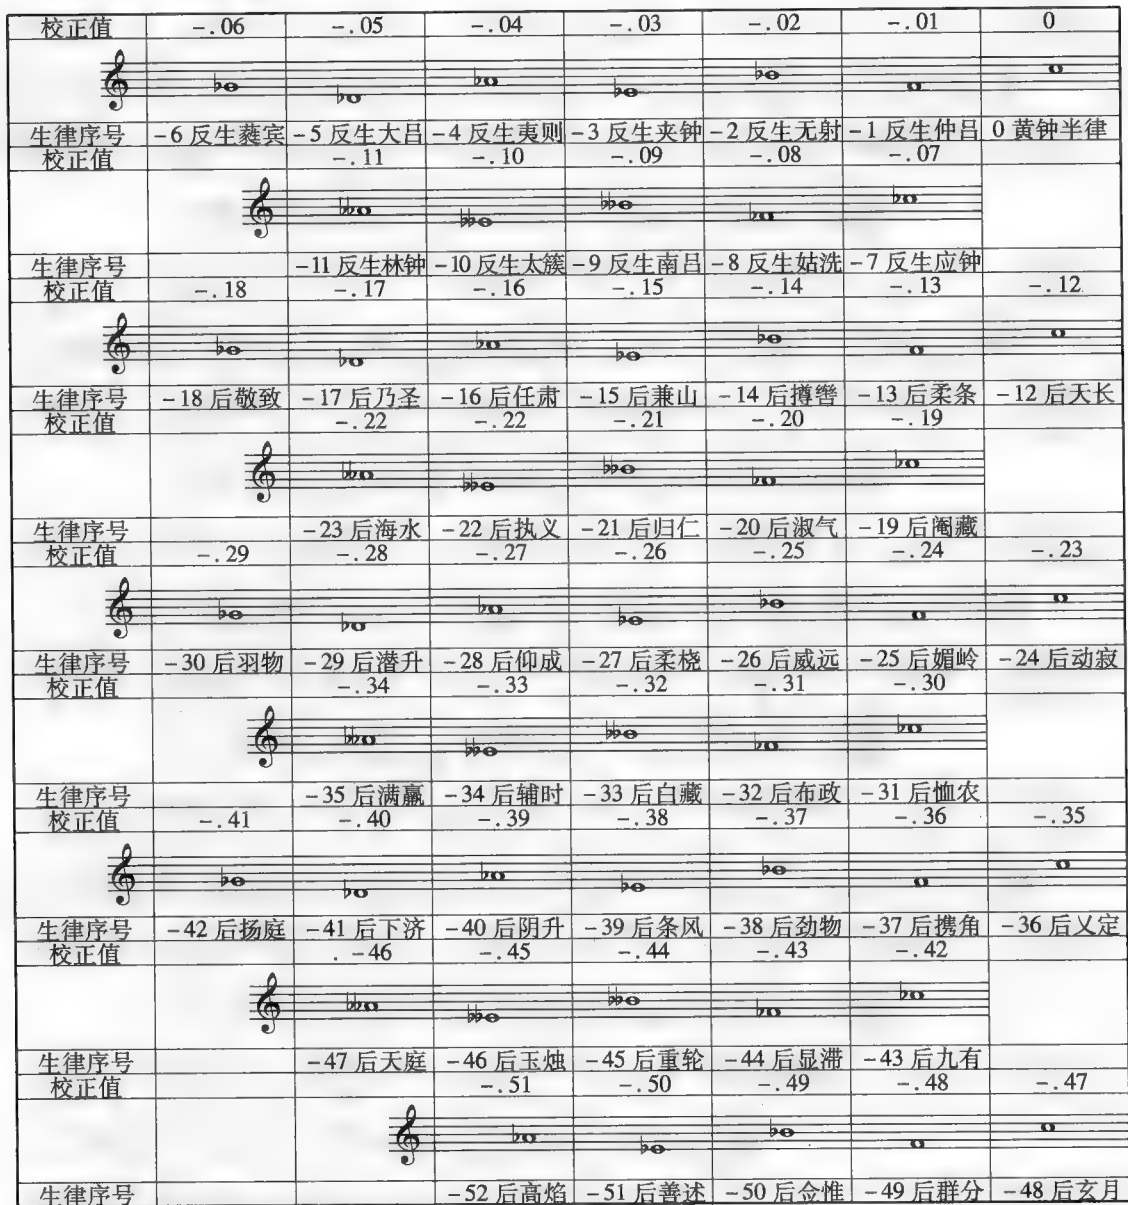 校正值 -.06 -.05 -.04 -.03 -.02 -.01 0
生律序号 -6反生蕤宾 -5反生大吕 -4反生夷则 -3反生夹钟 -2反生无射 -1反生仲吕 0黄钟半律
校正值 -.11 -.10 -.09 -.08 -.07
生律序号 -11反生林钟 -10反生太簇 -9反生南吕 -8反生姑洗 -7反生应钟
校正值 -.18 -.17 -.16 -.15 -.14 -.13 -.12
生律序号 -18后敬致 -17后乃圣 -16后任肃 -15后兼山 -14后撙辔 -13后柔条 -12后天长
校正值 -.22 -.22 -.21 -.20 -.19
生律序号 -23后海水 -22后执义 -21后归仁 -20后淑气 -19后阉藏
校正值 -.29 -.28 -.27 -.26 -.25 -.24 -.23
生律序号 -30后羽物 -29后潜升 -28后仰成 -27后柔桡 -26后威远 -25后媚岭 -24后动寂
校正值 -.34 -.33 -.32 -.31 -.30
生律序号 -35后满羸 -34后辅时 -33后白藏 -32后布政 -31后恤农
校正值 -.41 -.40 -.39 -.38 -.37 -.36 -.35
生律序号 -42后扬庭 -41后下济 -40后阴升 -39后条风 -38后劲物 -37后携角 -36后义定
校正值 .-46 -.45 -.44 -.43 -.42
生律序号 -47后天庭 -46后玉烛 -45后重轮 -44后显滞 -43后九有
校正值 -.51 -.50 -.49 -.48 -.47
生律序号 -52后高焰 -51后善述 -50后佥惟 -49后群分 -48后玄月